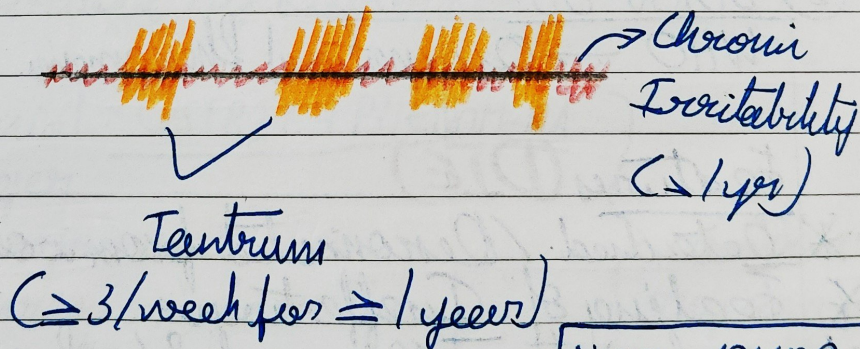 Chronic
Irritability
(≥ 1 yr)
Tantrum
(≥ 3/week for ≥ 1 years)